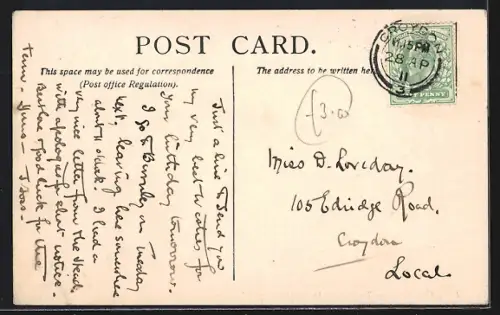 POST CARD.
This space may be used for correspondence
(Post office Regulation).
The address to be written here
CROYDON
11.15 PM
28 AP
11
3
HALF PENNY
£3.00
Miss D. Loveday.
105 Edridge Road.
Croydon
Local
Just a line to send you
my very best wishes for
your birthday tomorrow.
I go to Burnley on
next, leaving here somewhere
about 11 o'clock. I had a
very nice letter from the Head,
with apologies for short notice.
Best love & good luck for the
term